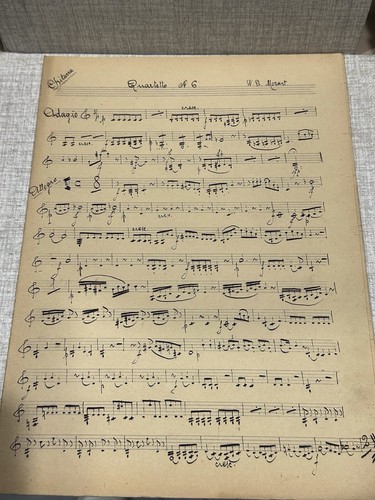 Chitarra
Quartetto N 6 W. A. Mozart
Adagio
cresc.
cresc.
Allegro
cresc.
cresc.
cresc.